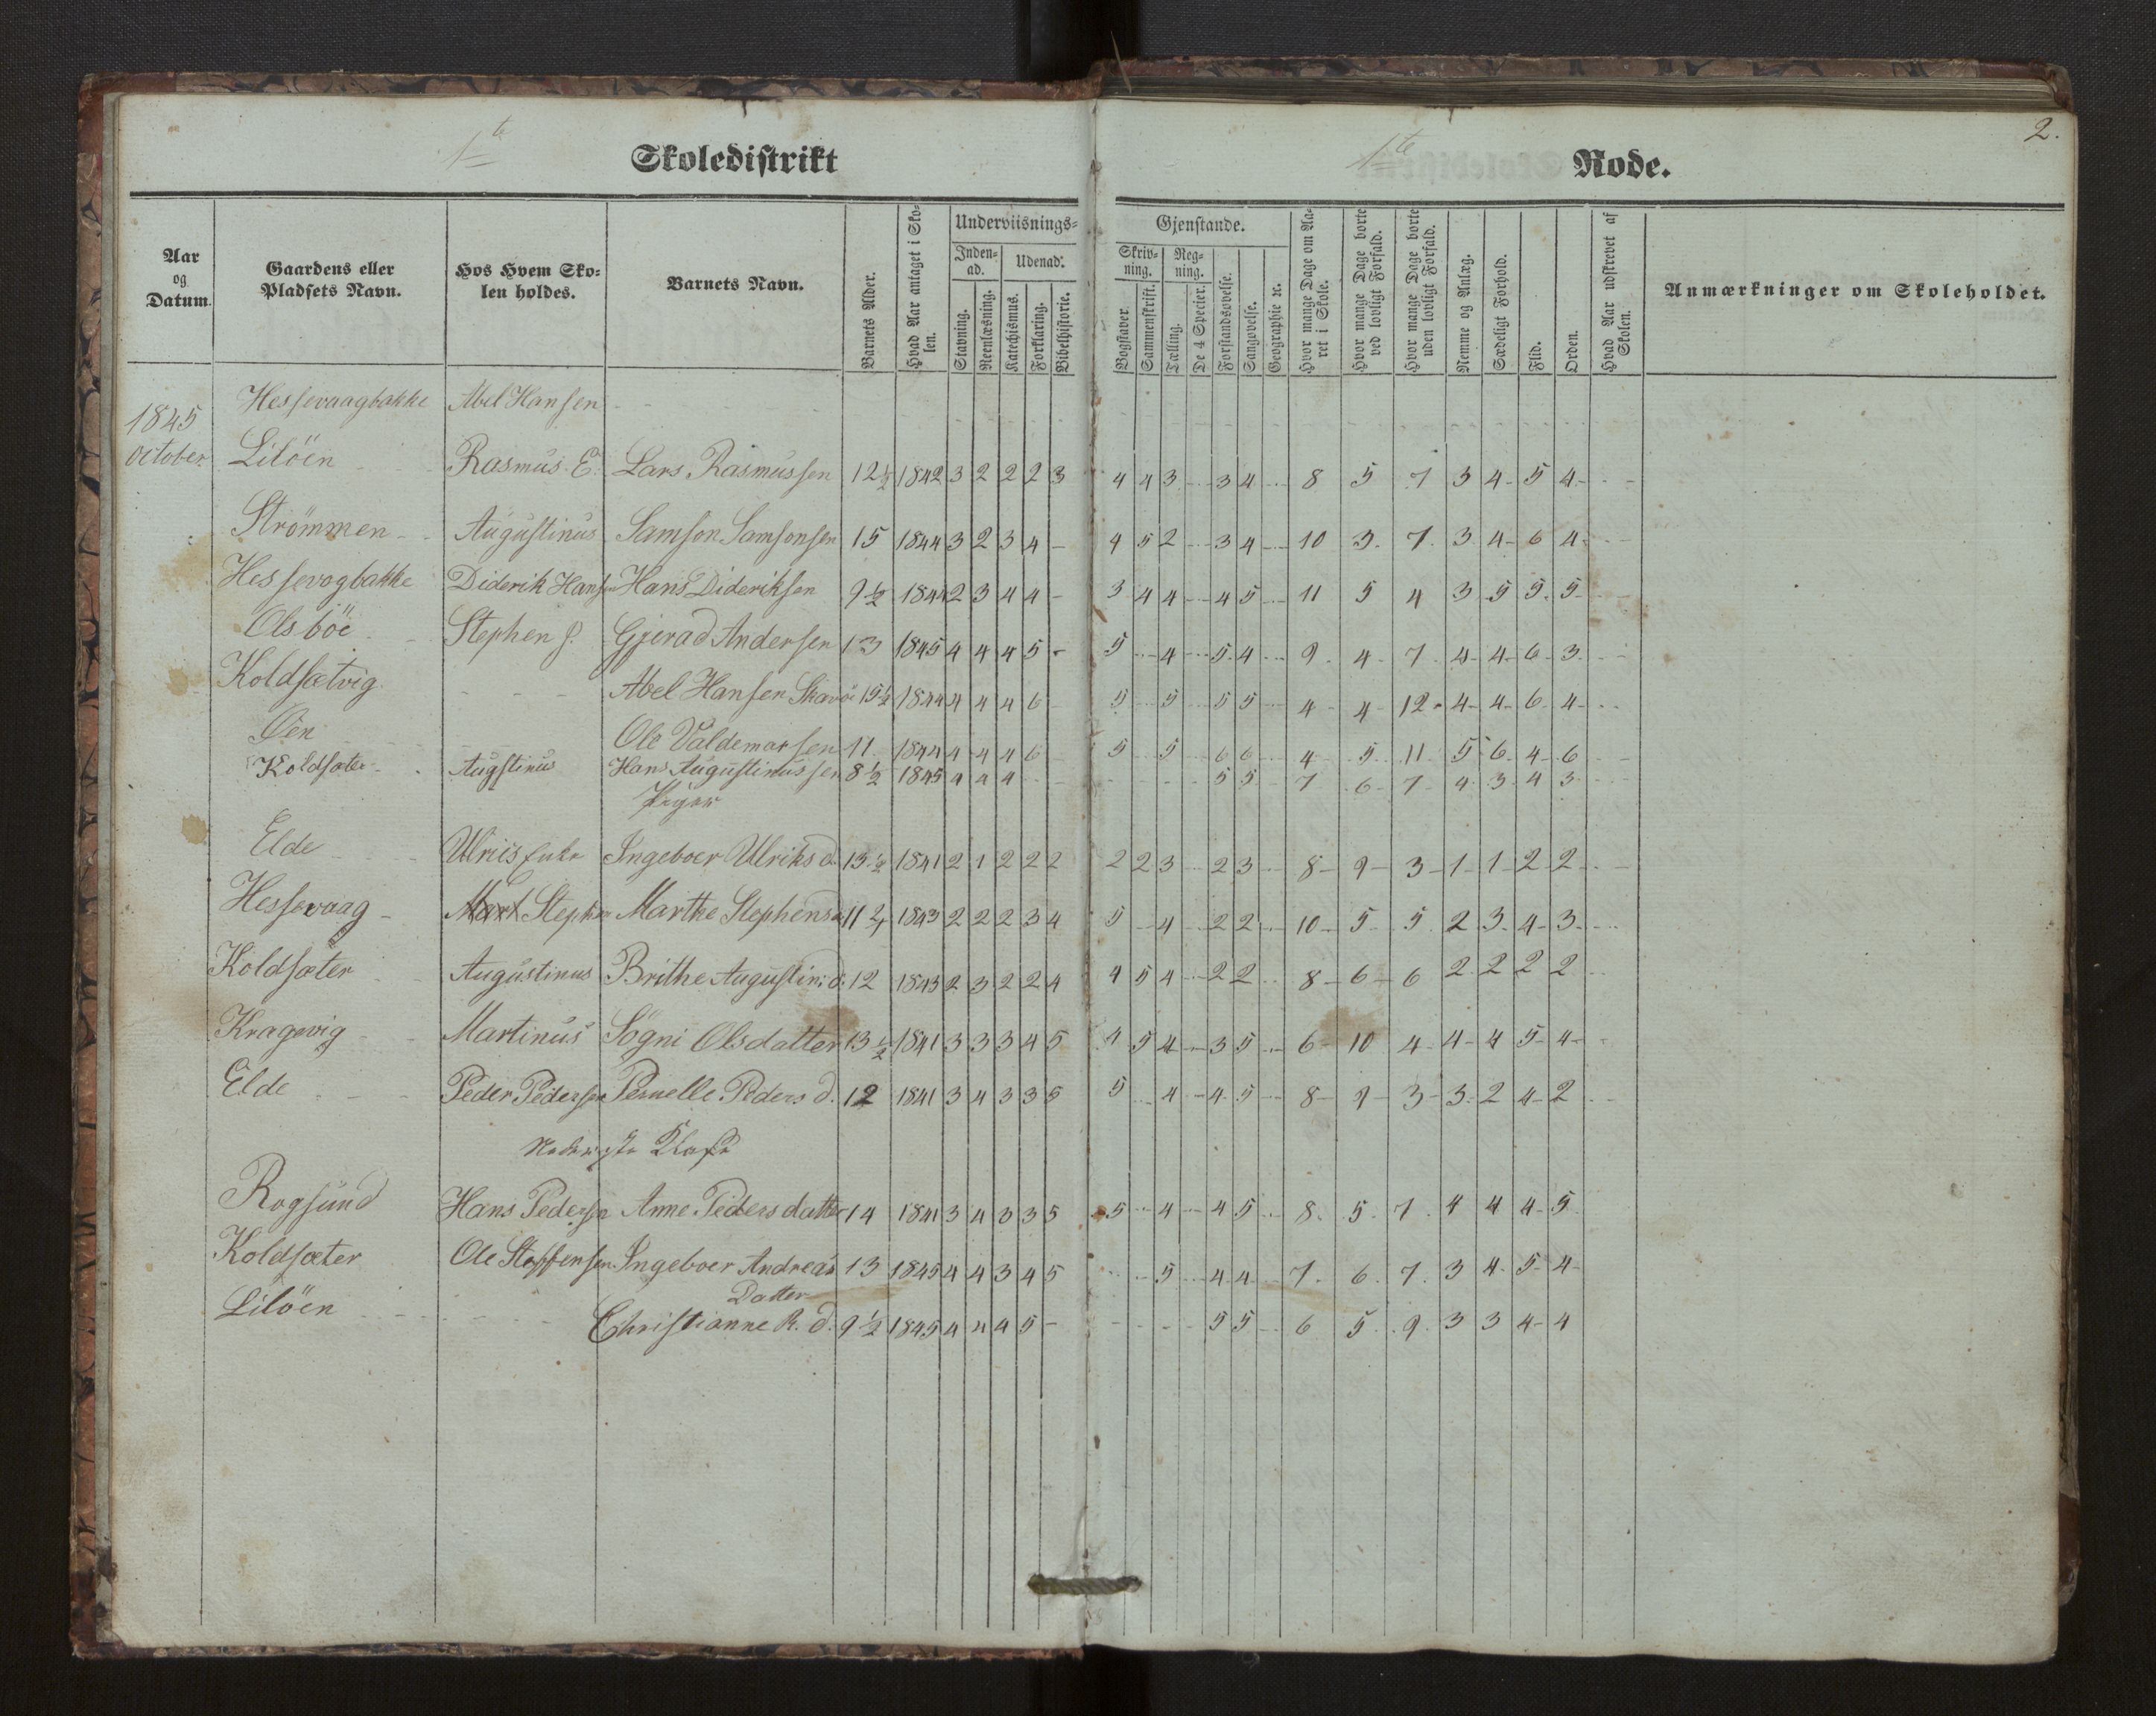 1te Skoledistrikt 1te Rode. 2.
Aar og Datum. Gaardens eller Pladsets Navn. Hos Hvem Skolen holdes. Barnets Navn. Barnets Alder. Hvad Aar antaget i Skolen. Underviisnings- Gjenstande.
Indenad. Udenad. Skrivning. Regning.
Stavning. Reenlæsning. Katechismus. Forklaring. Bibelhistorie. Bogstaver. Sammenskrift. Tælling. De 4 Specier. Forstandsøvelse. Sangøvelse. Geographie ꝛc. Hvor mange Dage om Aaret i Skole. Hvor mange Dage borte ved lovligt Forfald. Hvor mange Dage borte uden lovligt Forfald. Nemme og Anlæg. Sædeligt Forhold. Flid. Orden. Hvad Aar udskrevet af Skolen. Anmærkninger om Skoleholdet.
Hessevaagbakke Abel Hansen
1845
October. Lilöen Rasmus E. Lars Rasmussen 12½ 1842 3 2 2 2 3 4 4 3 3 4 8 5 7 3 4 5 4
Strömmen Augustinus Samson Samsonsen 15 1844 3 2 3 4 - 4 5 2 3 4 10 3 7 3 4 6 4
Hessevogbakke Diderik Hansen Hans Dideriksen 9½ 1844 2 3 4 4 - 3 4 4 4 5 11 5 4 3 5 5 5
Olsböe Stephen J. Gjerad Andersen 13 1845 4 4 4 5 - 5 4 5 4 9 4 7 4 4 6 3
Koldsætvig Abel Hansen 15½ 1844 4 4 4 6 5 5 5 5 4 4 12 4 4 6 4
Øen Ole Valdemarsen 11 1844 4 4 4 6 5 5 6 6 4 5 11 5 6 4 6
Koldsæter Augstinus Hans Augustinussen 8½ 1845 4 4 4 5 5 7 6 7 4 3 4 3
Piger
Elde Ingeboer Ulriks d. 13½ 1841 2 1 2 2 2 2 2 3 2 3 8 9 3 1 1 2 2
Hessevaag Stephen Marthe Stephensd 11 1843 2 2 2 3 4 5 4 2 2 10 5 5 2 3 4 3
Koldsæter Augustinus Brithe Augustin: d. 12 1843 2 3 2 2 4 4 5 4 2 2 8 6 6 2 2 2 2
Kragevig Martinus Sögni Olsdatter 13½ 1841 3 3 3 4 5 4 5 4 3 5 6 10 4 4 4 5 4
Elde Peder Pedersen Pernelle Peders d. 12 1841 3 4 3 3 5 5 4 4 5 8 9 3 3 2 4 2
Nederste Klasse
Rogsund Hans Pedersen Anne Pedersdatter 14 1841 3 4 3 3 5 5 4 4 5 8 5 7 4 4 4 5
Koldsæter Ole Steffensen Ingeboer Andreas 13 1845 4 4 3 4 5 5 4 4 7 6 7 3 4 5 4
Datter
Lilöen Christianne R. d. 9½ 1845 4 4 4 5 - 5 5 6 5 9 3 3 4 4